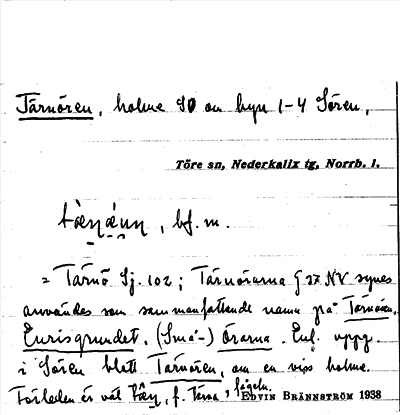 Tärnören, holme SO om byn 1-4 Sören,
Töre sn, Nederkalix tg, Norrb. l.
bf. m.
= Tärnö Sj. 102; Tärnörarna § 37 NV synes
användes som sammanfattande namn på Tärnören,
Enrisgrundet, (Små-) Örarna. Enl. uppg.
i Sören blott Tärnören, om en viss holme.
Förleden är väl f. tärna, fågeln.
EDVIN BRÄNNSTRÖM 1938